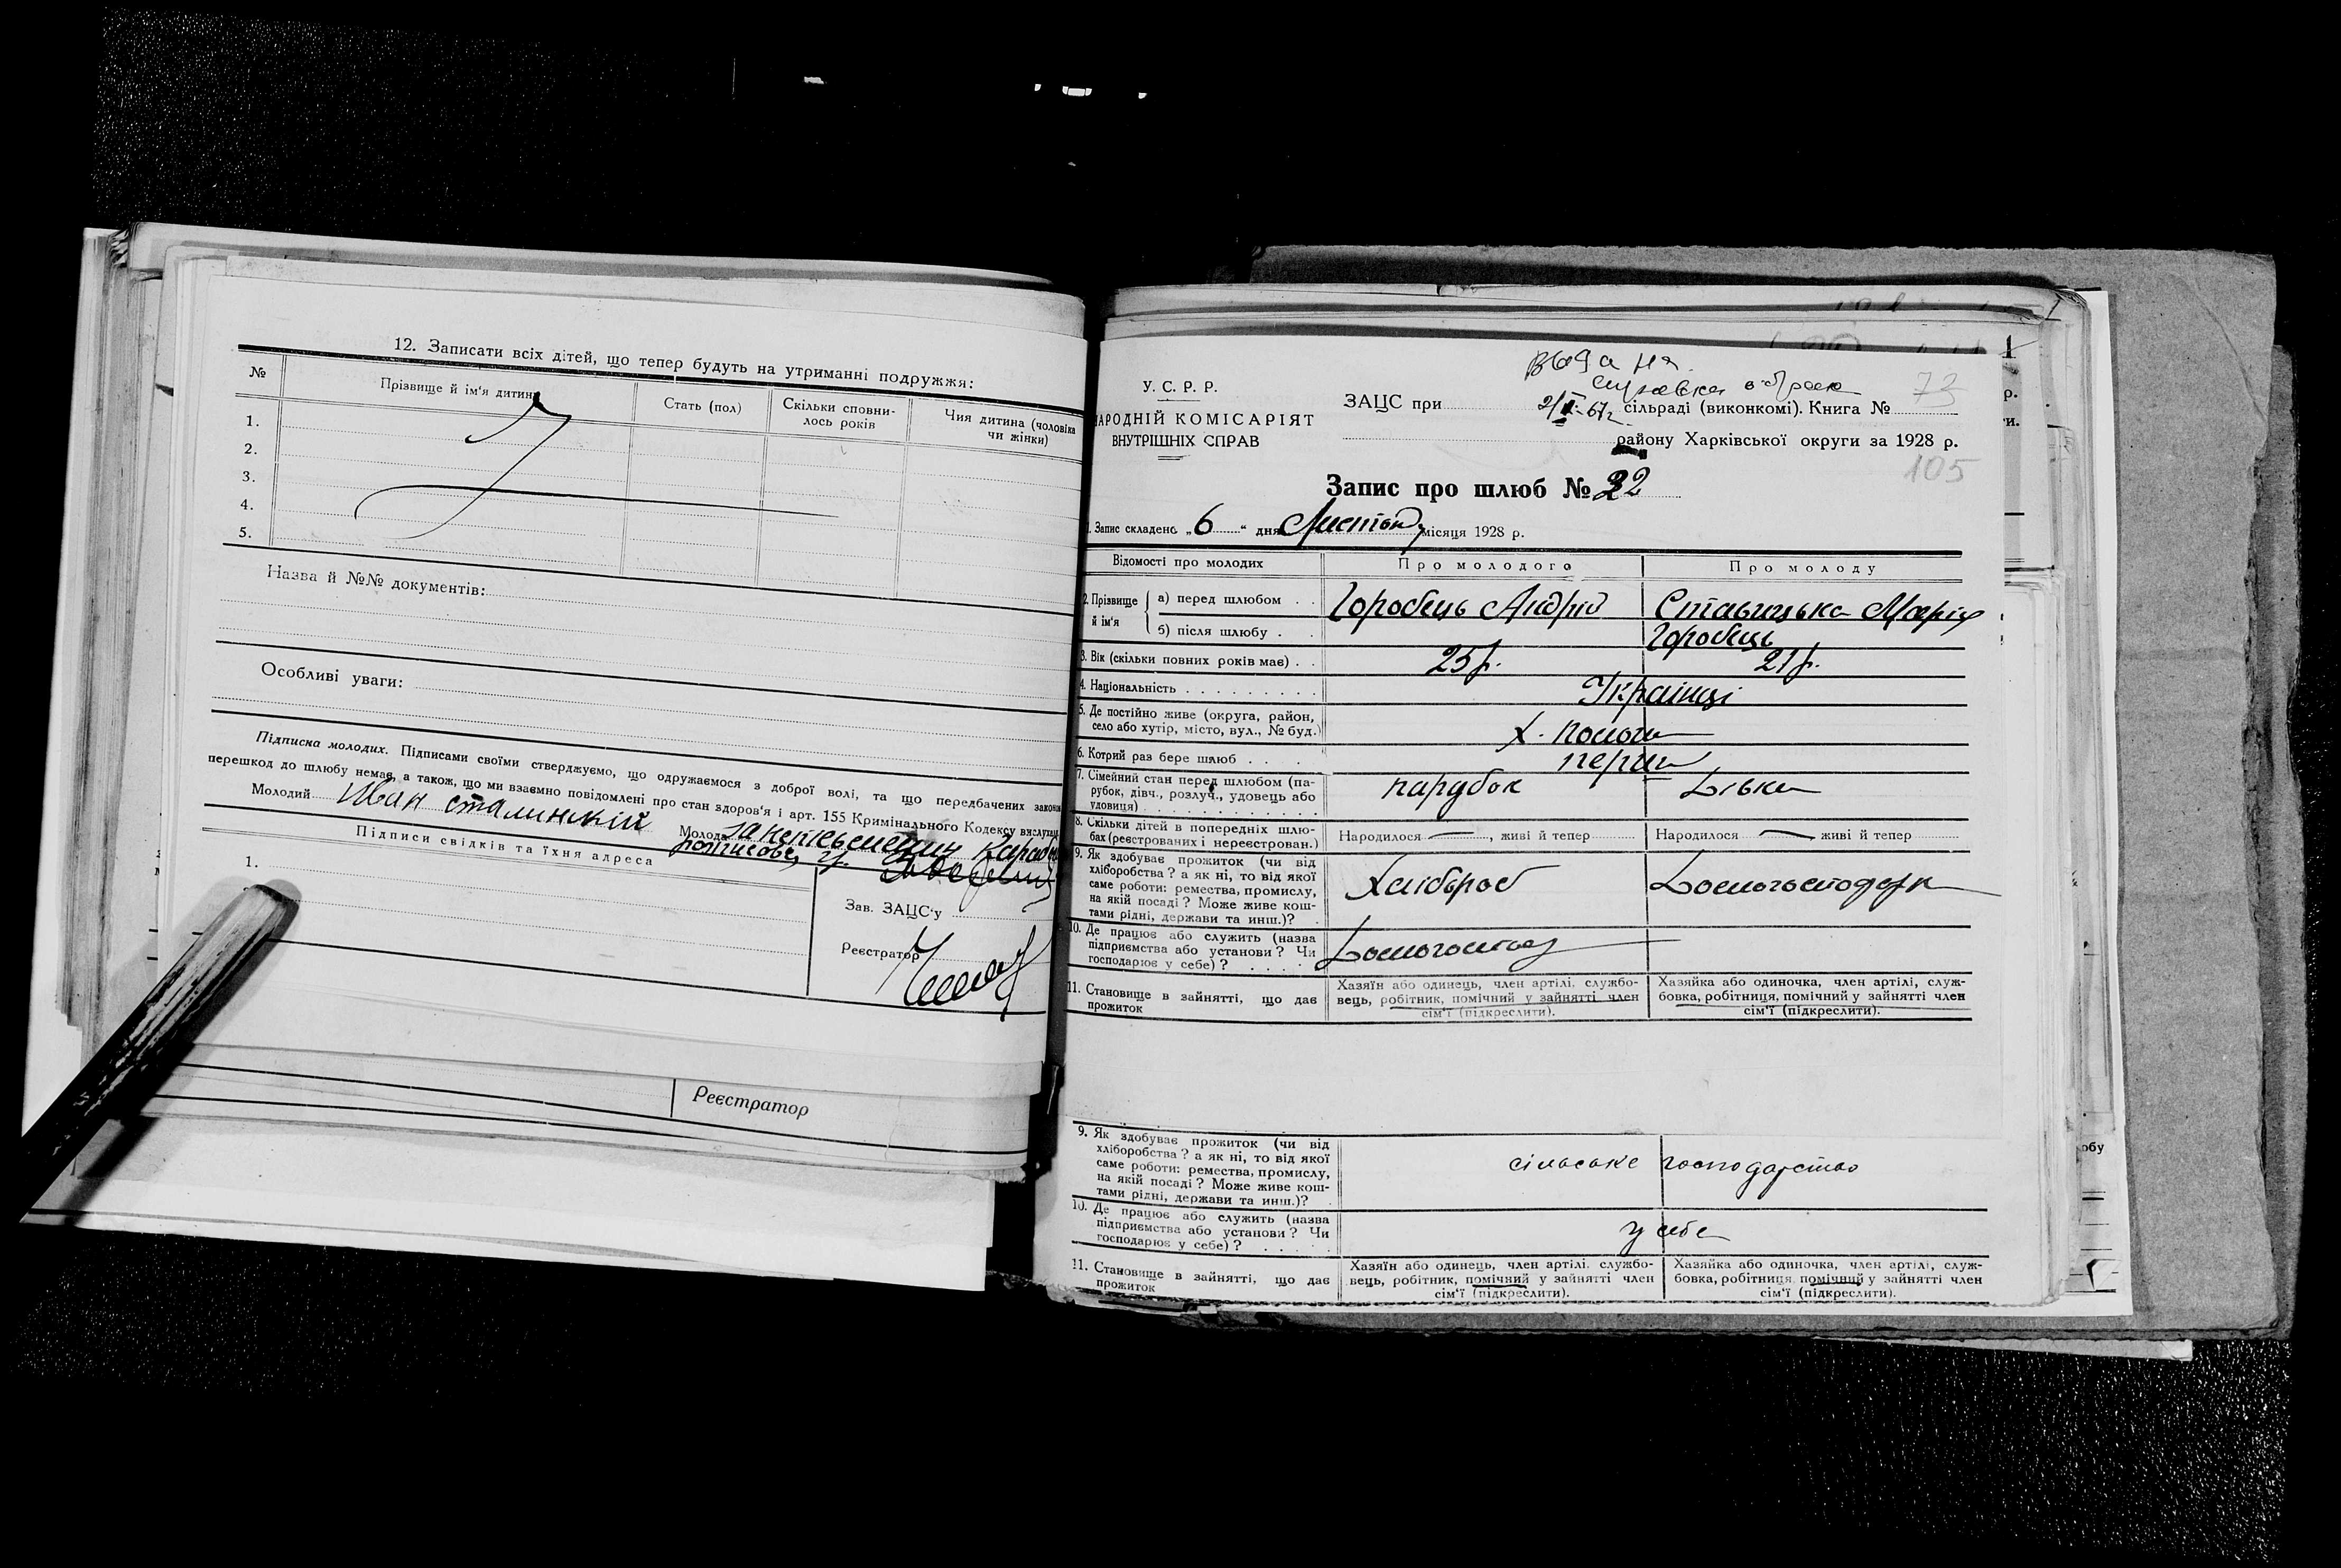 12. Записати всіх дітей, що тепер будуть на утриманні подружжя:
№
Прізвище й ім'я дитини
Стать (пол)
Скільки сповни-
лось років
Чия дитина (чоловіка
чи жінки)
1.
2.
3.
4.
5.
Назва й №№ документів:
Особливі уваги:
Підписка молодих. Підписами своїми стверджуємо, що одружаємося з доброї волі, та що передбачених законом
перешкод до шлюбу немає, а також, що ми взаємно повідомлені про стан здоров'я і арт. 155 Кримінального Кодексу вислухали
Молодий Иван сталинский Молода за неписьменну
розписовся гр.
Підписи свідків та їхня адреса
1.
Зав. ЗАЦС'у
Реєстратор
Реєстратор
Выдана
справка о браке
2/II-67г
73
У. С. Р. Р.
НАРОДНІЙ КОМІСАРІЯТ
ВНУТРІШНІХ СПРАВ
ЗАЦС при сільраді (виконкомі). Книга №
району Харківської округи за 1928 р.
105
Запис про шлюб № 32
1. Запис складено „6“ дня Листопаду місяця 1928 р.
Відомості про молодих
Про молодого
Про молоду
2. Прізвище й ім'я
а) перед шлюбом . . Горобець Андрій Ставицька Марія
б) після шлюбу . . Горобець
3. Вік (скільки повних років має) . . 25 р. 21 р.
4. Національність . . . . . . . . . Українці
5. Де постійно живе (округа, район,
село або хутір, місто, вул., № буд.) х.
6. Котрий раз бере шлюб . . . перший
7. Сімейний стан перед шлюбом (па-
рубок, дівч., розлуч., удовець або
удовиця) . . . . . . . . . . парубок Дівка
8. Скільки дітей в попередніх шлю-
бах (реєстрованих і нереєстрован.)
Народилося —, живі й тепер
Народилося — живі й тепер
9. Як здобуває прожиток (чи від
хліборобства? а як ні, то від якої
саме роботи: ремества, промислу,
на якій посаді? Може живе кош-
тами рідні, держави та инш.)?
Хлібороб Домогосподарка
10. Де працює або служить (назва
підприємства або установи? Чи
господарює у себе)? . . . . .
11. Становище в зайнятті, що дає
прожиток
Хазяїн або одинець, член артілі, службо-
вець, робітник, помічний у зайнятті член
сім'ї (підкреслити).
Хазяйка або одиночка, член артілі, служ-
бовка, робітниця, помічний у зайнятті член
сім'ї (підкреслити).
9. Як здобуває прожиток (чи від
хліборобства? а як ні, то від якої
саме роботи: ремества, промислу,
на якій посаді? Може живе кош-
тами рідні, держави та инш.)?
сільське господарство
10. Де працює або служить (назва
підприємства або установи? Чи
господарює у себе)? . . . . .
у себе
11. Становище в зайнятті, що дає
прожиток
Хазяїн або одинець, член артілі, службо-
вець, робітник, помічний у зайнятті член
сім'ї (підкреслити).
Хазяйка або одиночка, член артілі, служ-
бовка, робітниця, помічний у зайнятті член
сім'ї (підкреслити).